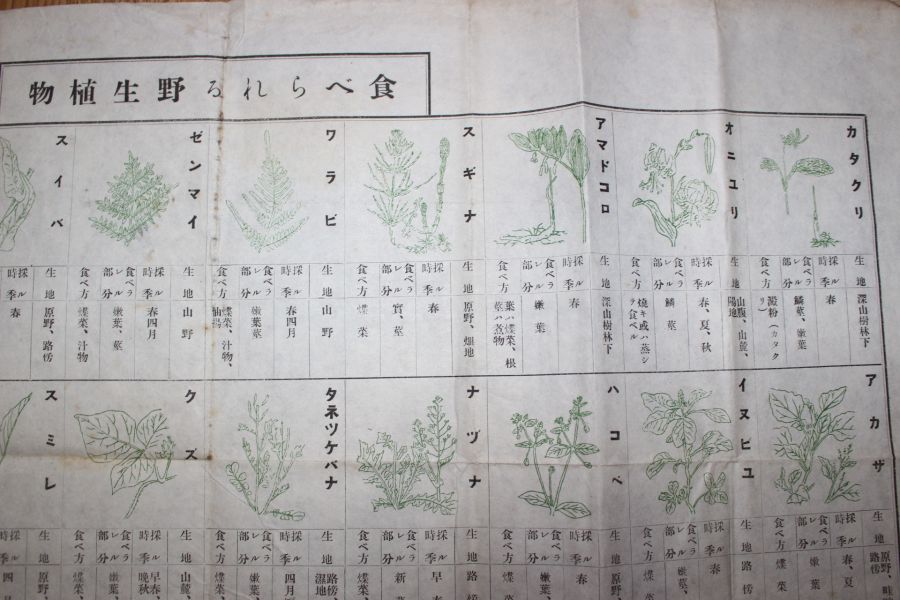 食べられる野生植物
カタクリ
生地 深山樹林下
採ル時季 春
食ベラレル部分 鱗莖、嫩葉
食べ方 澱粉（カタクリ）
オニユリ
生地 山腹、山麓、陽地
採ル時季 春、夏、秋
食ベラレル部分 鱗莖
食べ方 燒キ或ハ蒸シヲ食ベル
アマドコロ
生地 深山樹林下
採ル時季 春
食ベラレル部分 嫩葉
食べ方 葉ハ煠菜、根莖ハ煮物
スギナ
生地 原野、畑地
採ル時季 春
食ベラレル部分 實、莖
食べ方 煠菜
ワラビ
生地 山野
採ル時季 春四月
食ベラレル部分 嫩葉莖
食べ方 煠菜、汁物、油揚
ゼンマイ
生地 山野
採ル時季 春四月
食ベラレル部分 嫩葉、莖
食べ方 煠菜、汁物
スイバ
生地 原野、路傍
採ル時季 春
アカザ
生地 原野、路傍
採ル時季 春、夏
食ベラレル部分 嫩葉
食べ方 煠菜
イヌビユ
生地 路傍
採ル時季 春
食ベラレル部分 嫩莖、
食べ方 煠
ハコベ
生地 原野、
採ル時季 春
食ベラレル部分 嫩葉、
食べ方 煠
ナヅナ
生地 路傍
採ル時季 早春
食ベラレル部分 新
食べ方 煠菜、
タネツケバナ
生地 路傍、濕地
採ル時季 四月
食ベラレル部分 嫩葉
食べ方 煠菜、
クズ
生地 山麓、
採ル時季 早春、晩秋
食ベラレル部分 嫩葉、
食べ方 煠菜、
スミレ
生地 原野、
採ル時季 四